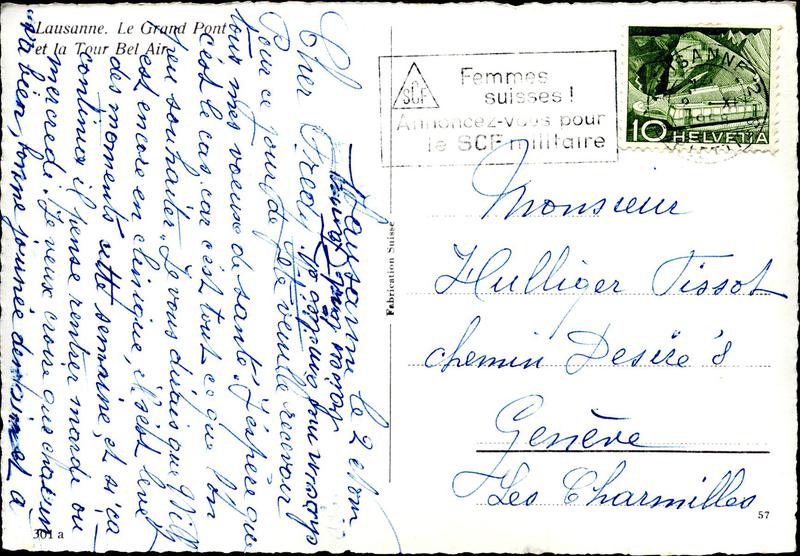 Lausanne. Le Grand Pont
et la Tour Bel Air
SCF
Femmes
suisses !
Annoncez-vous pour
le SCF militaire
LAUSANNE
10 HELVETIA
Monsieur
Hulliger Tissot
chemin Désiré 8
Genève
Les Charmilles
Fabrication Suisse
57
301 a
Lausanne le 2
Cher Fredy,
Pour ce jour de fête veuille recevoir
tous mes voeux de santé. J'espère que
c'est le cas, car c'est tout ce que l'on
peu souhaiter. Je vous dirais que Willy
est encore en clinique, il s'est levé
des moments cette semaine, et si ça
continue il pense rentrer mardi ou
mercredi. Je veux crois que chacun
va bien, bonne journée demain et à